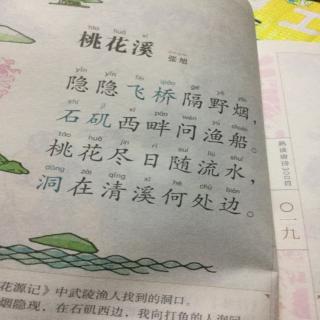 táo huā xī
桃花溪
张旭
yǐn yǐn fēi qiáo gé yě yān
隐隐飞桥隔野烟，
shí jī xī pàn wèn yú chuán
石矶西畔问渔船。
táo huā jìn rì suí liú shuǐ
桃花尽日随流水，
dòng zài qīng xī hé chù biān
洞在清溪何处边。
花源记》中武陵渔人找到的洞口。
烟隐现，在石矶西边，我向打鱼的人询问
熟读唐诗300首
〇一九